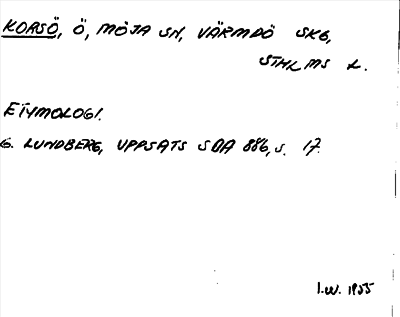 KORSÖ, Ö, MÖJA SN, VÄRMDÖ SKG,
STHLMS L.
ETYMOLOGI.
G. LUNDBERG, UPPSATS SOA 886, S. 17.
I.W. 1955